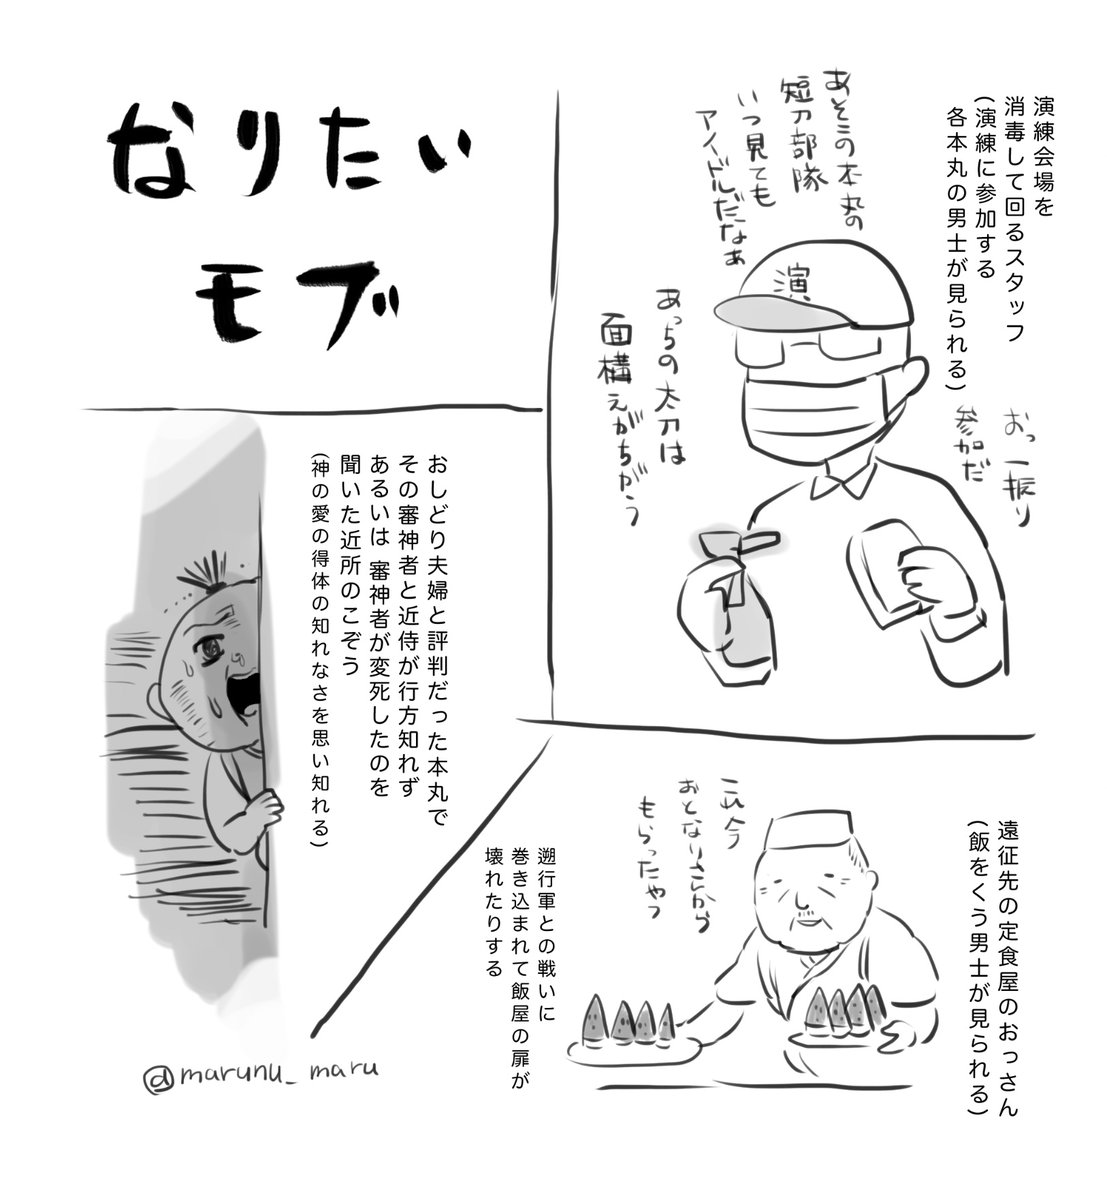 なりたい
モブ
演練会場を
消毒して回るスタッフ
(演練に参加する
各本丸の男士が見られる)
あそこの本丸の
短刀部隊
いつ見ても
アイドルだなぁ
演
あっちの太刀は
面構えがちがう
おっ一振り
参加だ
おしどり夫婦と評判だった本丸で
その審神者と近侍が行方知れず
あるいは 審神者が変死したのを
聞いた近所のこぞう
(神の愛の得体の知れなさを思い知れる)
遠征先の定食屋のおっさん
(飯をくう男士が見られる)
おとなりさんから
もらったやつ
遡行軍との戦いに
巻き込まれて飯屋の扉が
壊れたりする
@marunu_maru